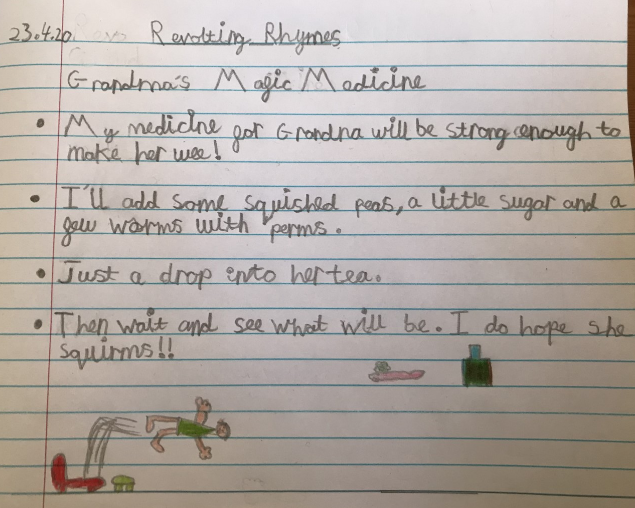 23.4.20 Revolting Rhymes
Grandma's Magic Madicine
• My medicine for Grandna will be strong enough to
make her wee!
• I'll add some squished peas, a little sugar and a
few worms with perms.
• Just a drop into her tea.
• Then wait and see what will be. I do hope she
squirms!!